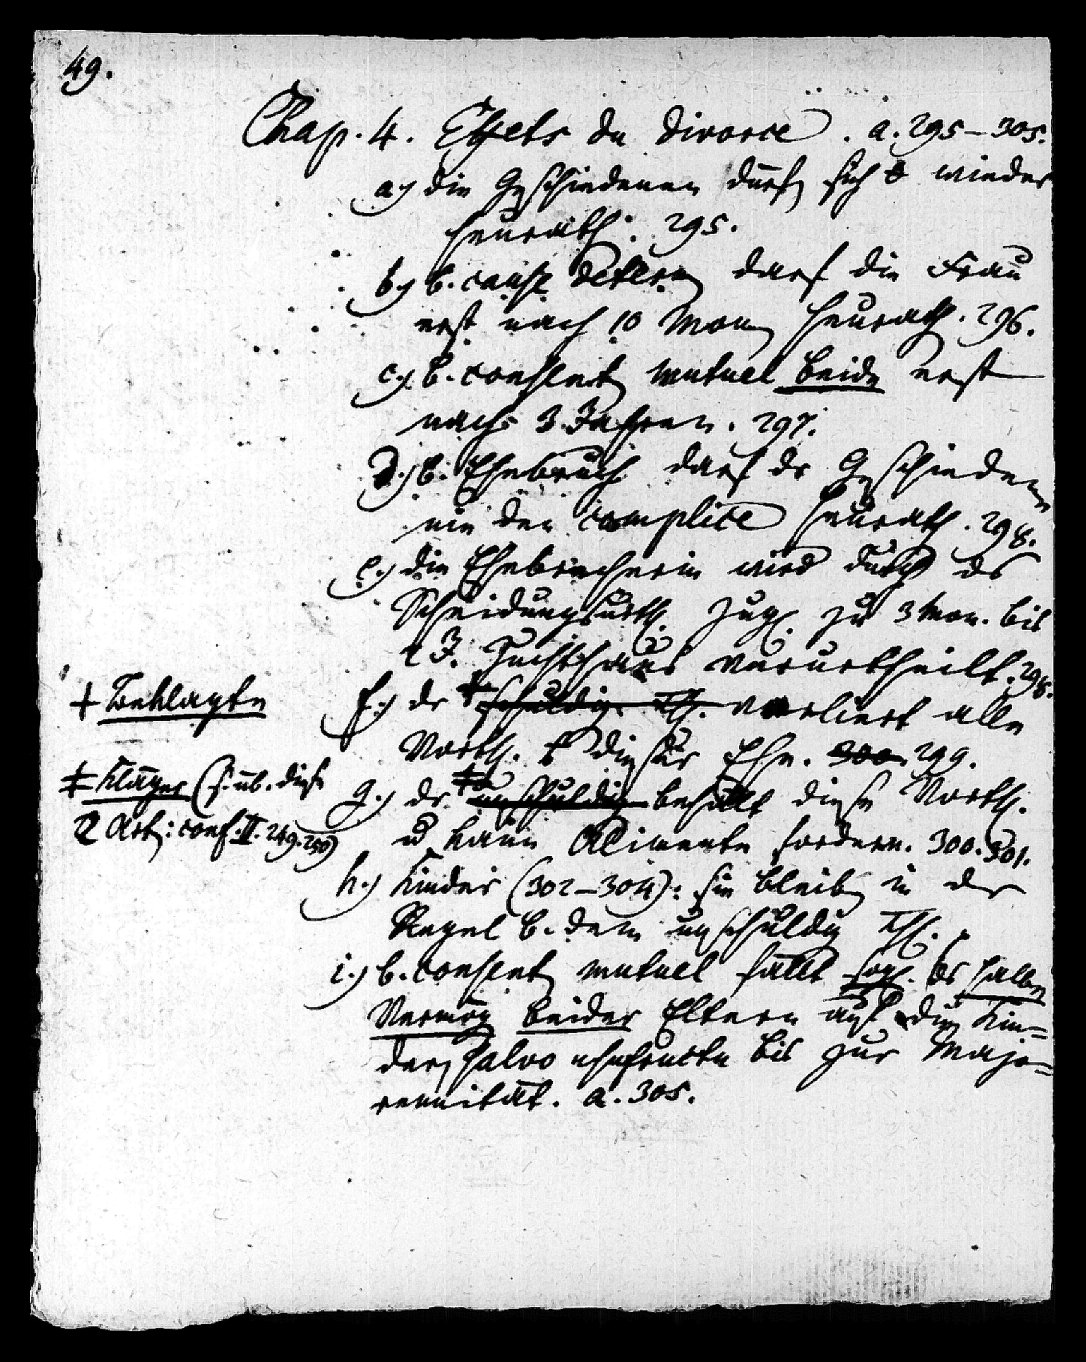 49.
Chap. 4. Effets du divorce. a. 295–305.
a.) die Geschiedenen dürf. sich wieder
heurath. 295.
b.) b. cause determ. darf die Frau
erst nach 10 Mon. heurath. 296.
c.) b. consent. mutuel beide erst
nach 3 Jahren. 297.
d.) b. Ehebruch darf dr Geschiedene
nie den complice heurath. 298.
e.) die Ehebrecherin wird durch ds
Scheidungsurth. zugl. zu 3 Mon. bis
2 J. Zuchthaus verurtheilt. 298.
+ Beklagte
f.) dr + schuldig. Th. verliert alle
Vorth. dieser Ehe. 300. 299.
‡ Kläger (s. üb. diese
2 Art. conf. II. 249. 250)
g.) dr. ‡ unschuldig behält diese Vorth.
u. kann Alimente fordern. 300. 301.
h.) Kinder (302–304): sie bleib. in der
Regel b. dem unschuldig. Th.
i.) b. consent. mutuel fällt sogl. ds halbe
Vermög. beider Eltern auf die Kin-
der, salvo usufructu bis zur Majo-
rennität. a. 305.